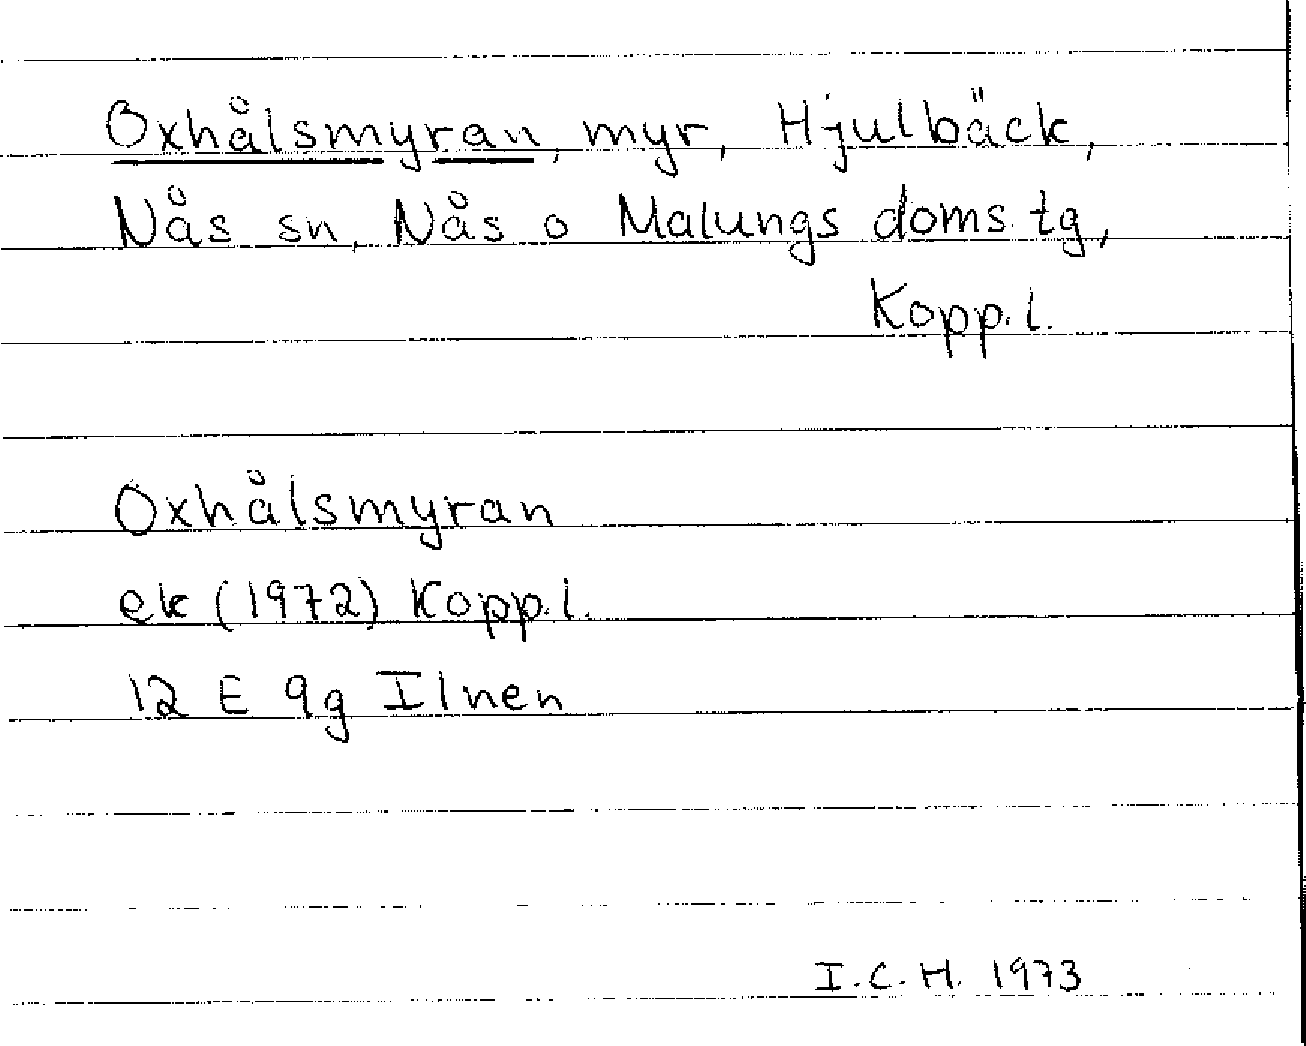 Oxhålsmyran, myr, Hjulbäck,
Nås sn, Nås o Malungs doms.tg,
Kopp.l.
Oxhålsmyran
ek (1972) Kopp.l.
12 E 9g Ilnen
I.C.H. 1973